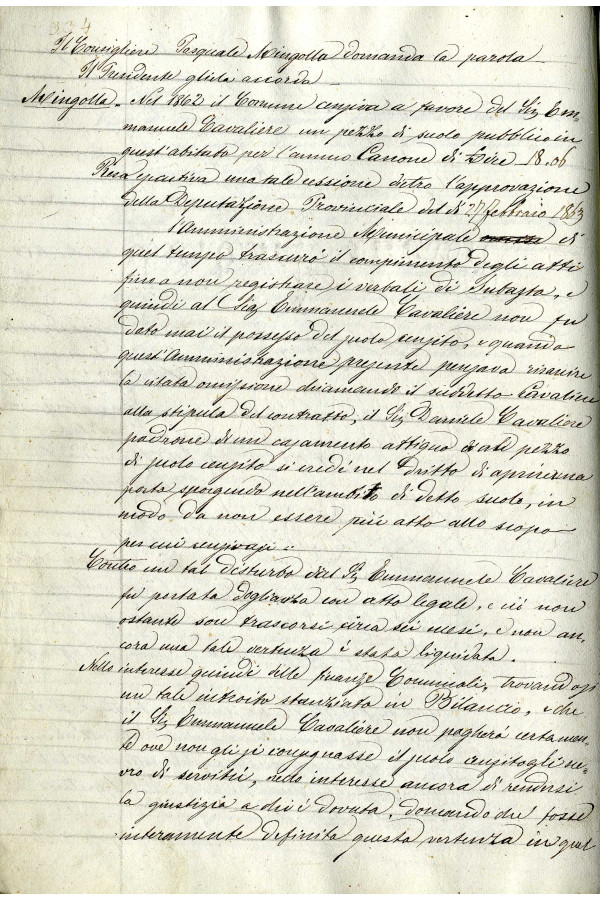 334
Il Consigliere Pasquale Mingolla domanda la parola
Il Presidente gliela accorda
Mingolla. Nel 1862 il Comune censiva a favore del Sig Em-
manuele Cavaliere un pezzo di suolo pubblico in
quest'abitato per l'annuo Canone di Lire 18.06
Resa esecutiva una tale cessione dietro l'approvazione
della Deputazione Provinciale del dì 27 febbraio 1863
l'Amministrazione Municipale di
quel tempo trascurò il compimento degli atti
fino a non registrare i verbali di Subasta, e
quindi al Sig Emmanuele Cavaliere non fu
dato mai il possesso del suolo censito, e quando
quest'Amministrazione presente pensava riparare
la citata omissione chiamando il suddetto Cavaliere
alla stipula del contratto, il Sig Daniele Cavaliere
padrone di un casamento attiguo a tal pezzo
di suolo censito si credé nel dritto di aprire una
porta sporgendo nell'ambito di detto suolo, in
modo da non essere più atto allo scopo
per cui censivasi.
Contro un tal disturbo dal Sig Emmanuele Cavaliere
fu portata doglianza con atto legale, e ciò non
ostante son trascorsi circa sei mesi, e non an-
cora una tale vertenza è stata liquidata.
Nello interesse quindi delle finanze Comunali, trovandosi
un tale introito stanziato in Bilancio, e che
il Sig Emmanuele Cavaliere non pagherà certamen-
te ove non gli si consegnasse il suolo censitogli ne-
tro di servitù, nello interesse ancora di rendersi
la giustizia a chi è dovuta, domando che fosse
interamente definita questa vertenza in quel